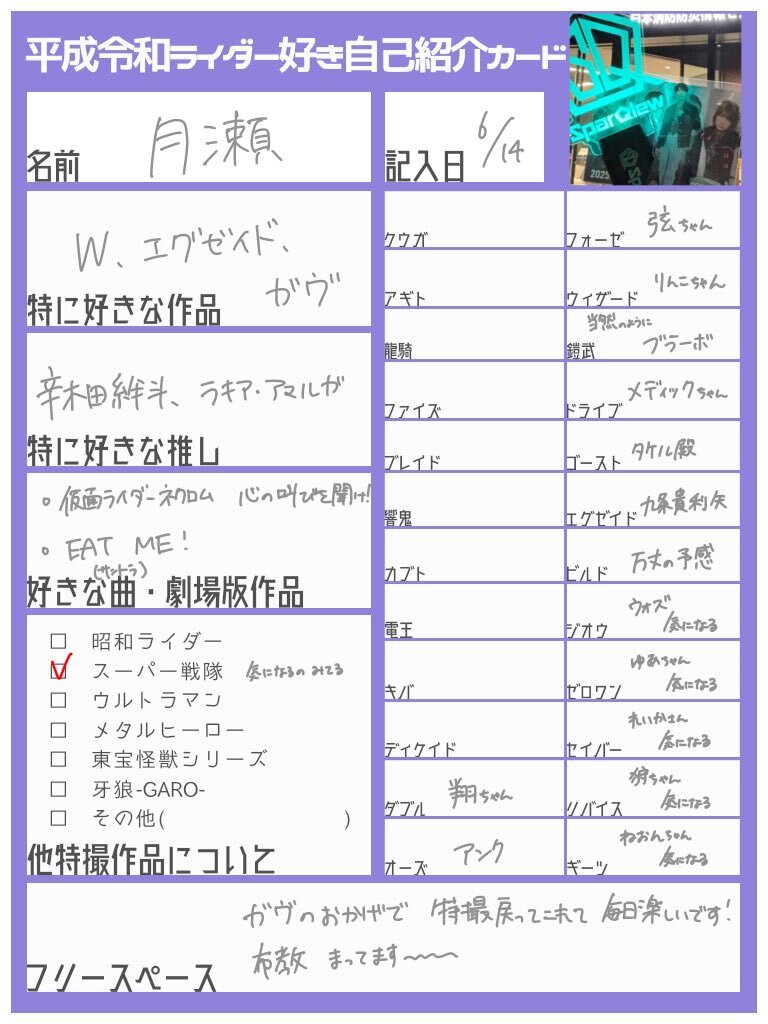 平成令和ライダー好き自己紹介カード
日本消防防災情報セ
sparqlew
2025
名前 月瀬
記入日 6/14
W、エグゼイド、
ガヴ
特に好きな作品
辛木田絆斗、ラキア・アマルガ
特に好きな推し
。仮面ライダーネクロム 心の叫びを開け!
。EAT ME!
(サントラ)
好きな曲・劇場版作品
□ 昭和ライダー
☑ スーパー戦隊 気になるのみてる
□ ウルトラマン
□ メタルヒーロー
□ 東宝怪獣シリーズ
□ 牙狼-GARO-
□ その他( )
他特撮作品について
クウガ
アギト
龍騎
ファイズ
ブレイド
響鬼
カブト
電王
キバ
ディケイド
ダブル 翔ちゃん
オーズ アンク
フォーゼ 弦ちゃん
ウィザード りんこちゃん
当然のように
鎧武 ブラーボ
ドライブ メディックちゃん
ゴースト タケル殿
エグゼイド 九条貴利矢
ビルド 万丈の予感
ジオウ ウォズ 気になる
ゼロワン ゆあちゃん 気になる
セイバー れいかさん 気になる
リバイス 狩ちゃん 気になる
ギーツ ねおんちゃん 気になる
ガヴのおかげで 特撮戻ってこれて 毎日楽しいです!
布教 まってます〜〜〜
フリースペース